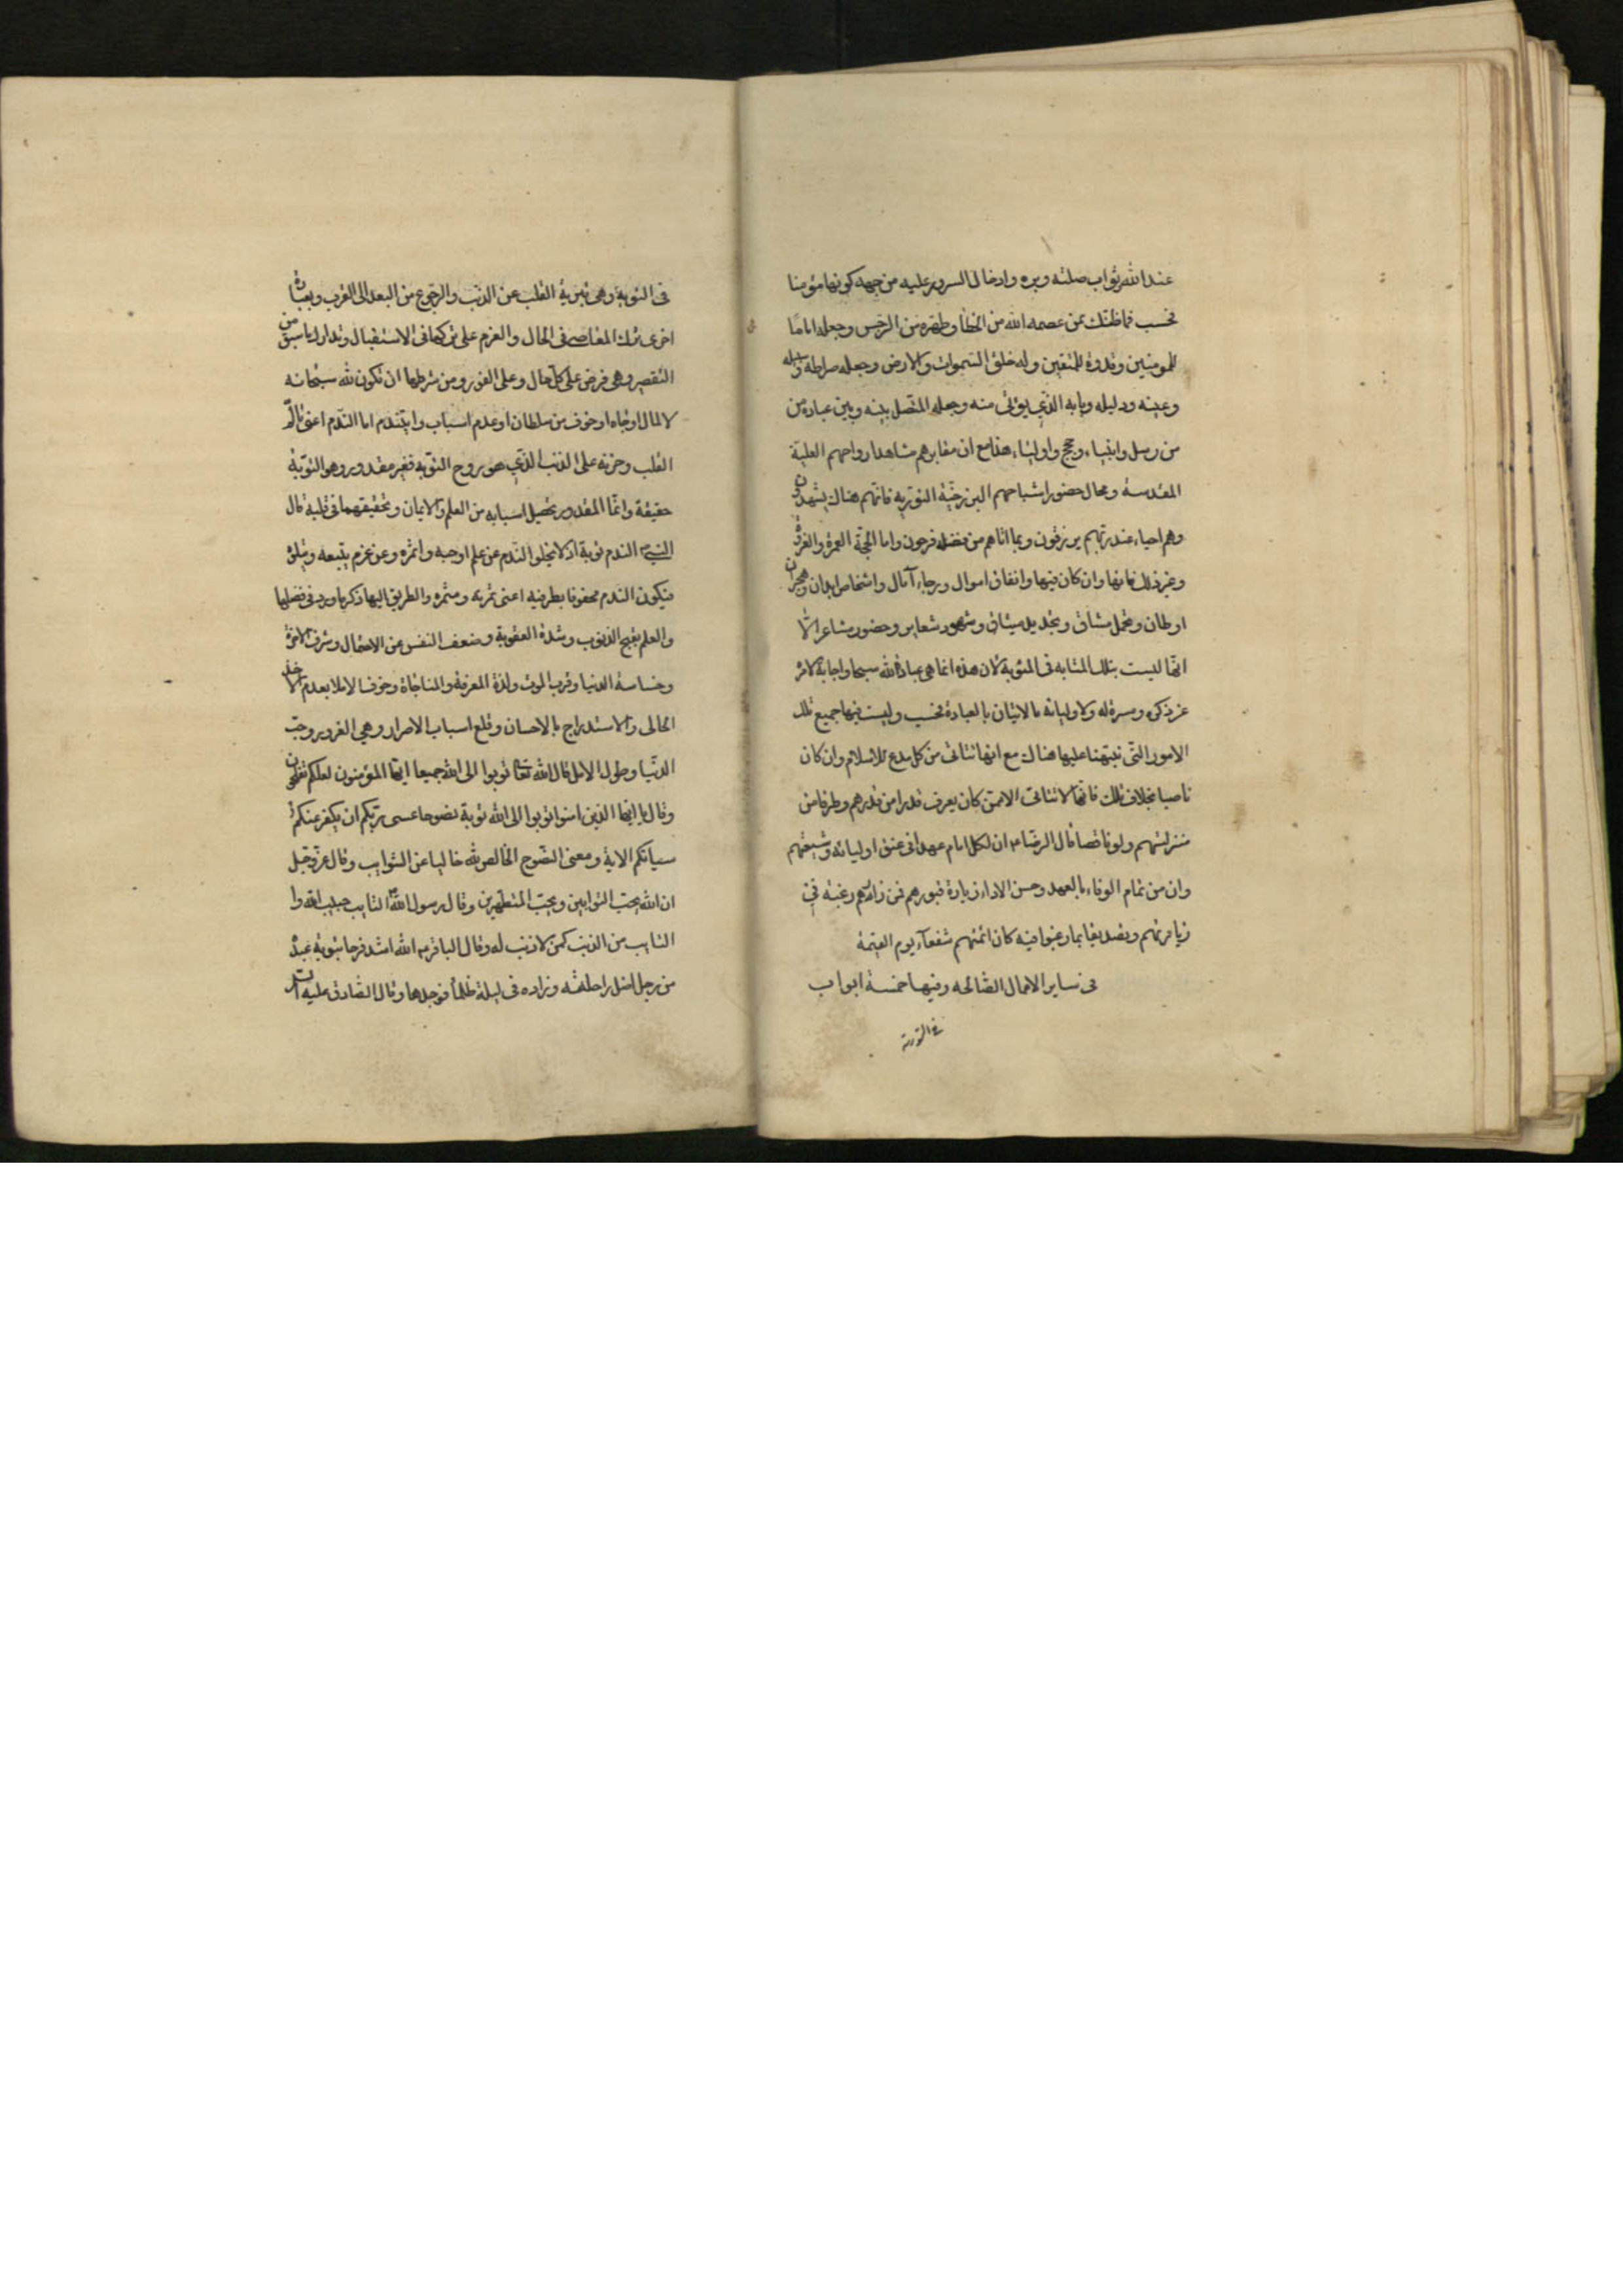 عند الله ثواب صلته وبره وادخال السرور عليه من جهة كونها مؤمنا
فحسب فما ظنك بمن عصمه الله من الخطأ وطهره من الرجس وجعله اماما
للمومنين وقدوة للمتقين وله خلق السموات والارض وجعله صراطه وسبيله
وعينه ودليله وبابه الذي يؤتى منه وجعله المتصل بينه وبين عباده من
من رسل وانبياء وحجج واولياء هذا مع ان مقابرهم مشاهد ارواحهم العلية
المقدسة ومحال حضور اشباحهم البرزخية النورية فانهم هناك يشهدون
وهم احياء عند ربهم يرزقون وبما اتاهم من فضله فرحون واما الحج والعمرة والغزوة
وغير ذلك فانها وان كان فيها وانفاق اموال ورجاء آمال واشخاص ابدان وهجران
اوطان وتحمل مشاق وتجديد ميثاق وشهود شعاير وحضور مشاعر الا
انها ليست بتلك المثابة في المثوبة لان هذه انما هي عبادة لله سبحا واجابة لامر
عز ذكره ومسرة له ولاوليائه بالاتيان بالعبادة فحسب وليست فيها جميع تلك
الامور التي نبهنا عليها هناك مع انها تتاتى من كل مدع للاسلام وان كان
ناصبا بخلاف تلك فانها لا تتاتى الا ممن كان يعرف قدرا من قدرهم وطرفا من
منزلتهم ولو ناقصا قال الرضا ع ان لكل امام عهدا في عنق اوليائه وشيعتهم
وان من تمام الوفاء بالعهد وحسن الاداء زيارة قبورهم فمن زارهم رغبة في
زيارتهم وتصديقا بما رغبوا فيه كان ائمتهم شفعاء يوم القيمة
في ساير الاعمال الصالحه وفيها خمسة ابواب
في التوبة
في التوبة وهي تبرية القلب عن الذنب والرجوع من البعد الى القرب وبعبارة
اخرى ترك المعاصي في الحال والعزم على تركها في الاستقبال وتدارك ما سبق من
التقصير وهي فرض على كل حال وعلى الفور ومن شرطها ان تكون لله سبحانه
لا لمال او جاه او خوف من سلطان او عدم اسباب وابتدم اما الندم اعني تألم
القلب وحزنه على الذنب الذي هو روح التوبة فغير مقدور وهو التوبة
حقيقة وانما المقدور تحصيل اسبابه من العلم والايمان وتحقيقهما في قلبه قال
النبي ص الندم توبة اذ لا يخلو الندم عن علم اوجبه واثمره وعن عزم يتبعه ويتلوه
فيكون الندم محفوفا بطرفيه اعني ثمرته ومثمره والطريق اليها ذكر ما ورد في فضلها
والعلم بقبح الذنوب وشدة العقوبة وضعف النفس عن الاحتمال وشرف الاخرة
وخساسة الدنيا وقرب الموت ولذة المعرفة والمناجاة وخوف الاملا بعدم الاخذ
الحالي والاستدراج بالاحسان وقلع اسباب الاصرار وهي الغرور وحب
الدنيا وطول الامل قال الله تعا توبوا الى الله جميعا ايها المؤمنون لعلكم تفلحون
وقال يا ايها الذين امنوا توبوا الى الله توبة نصوحا عسى ربكم ان يكفر عنكم
سياتكم الاية ومعنى النصوح الخالص لله خاليا عن الشوايب وقال عز وجل
ان الله يحب التوابين ويحب المتطهرين وقال رسول الله ص التايب حبيب الله وا
التايب من الذنب كمن لا ذنب له وقال الباقر ع الله اشد فرحا بتوبة عبده
من رجل اضل راحلته وزاده في ليلة ظلماء فوجدها وقال الصادق عليه